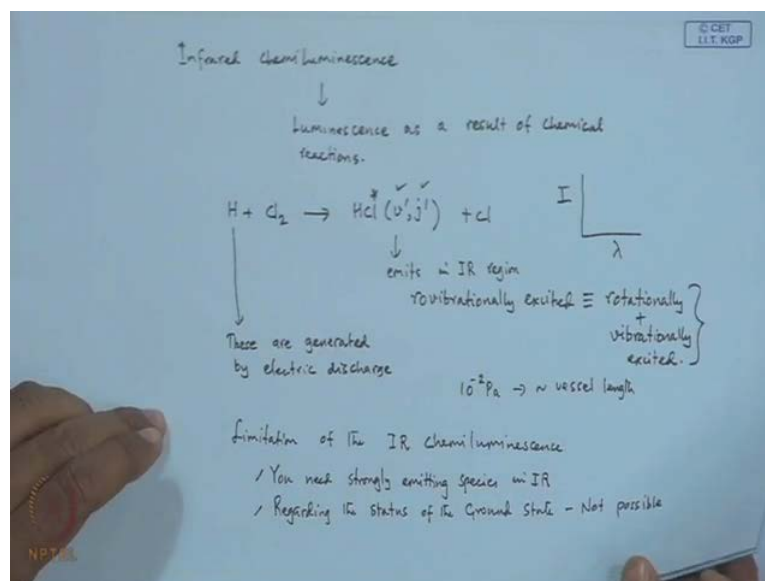 © CET
I.I.T. KGP
Infrared chemiluminescence
↓
Luminescence as a result of chemical
reactions.
H + Cl2 → HCl* (v', j') + Cl
I
λ
↓
emits in IR region
rovibrationally excited ≡ rotationally
+
vibrationally
excited.
These are generated
by electric discharge
10^-2 Pa → ~ vessel length
Limitation of the IR chemiluminescence
/ You need strongly emitting species in IR
/ Regarding the status of the Ground State - Not possible
NPTEL